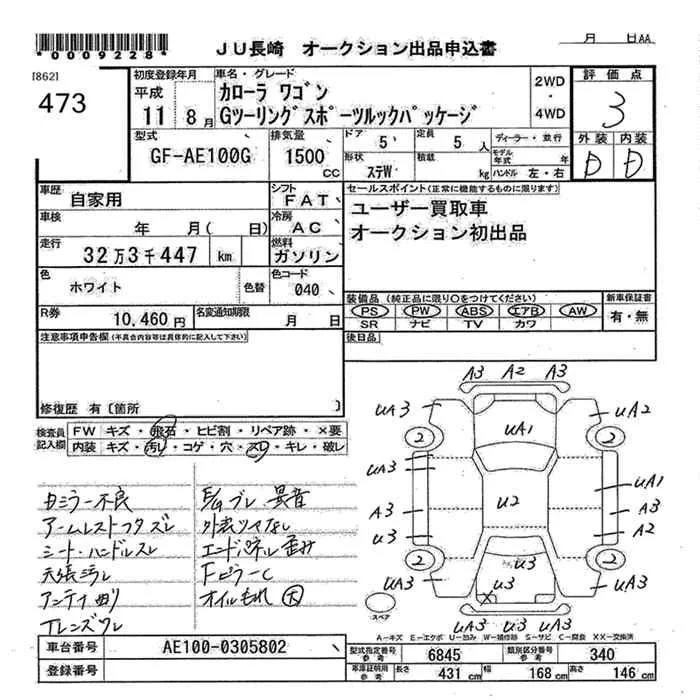 *0009228*
JU長崎 オークション出品申込書
月 日AA
[862]
473
初度登録年月
平成
11 8月
車名・グレード
カローラ ワゴン
Gツーリングスポーツルックパッケージ
2WD
・
4WD
評価点
3
外装 内装
D D
型式
GF-AE100G
排気量
1500
cc
ドア
5
定員
5人
ディーラー・並行
形状
ステW
積載
kg
モデル年式 年
ハンドル 左・右
車歴
自家用
シフト
FAT
車検
年 月( 日)
冷房
AC
走行
32万3千447 km
燃料
ガソリン
色
ホワイト
色替
色コード
040
R券
10,460円
名変通知期限
月 日
セールスポイント(正常に機能するものに限ります)
ユーザー買取車
オークション初出品
装備品(純正品に限り○をつけてください)
PS PW ABS エアB AW
SR ナビ TV カワ
新車保証書
有・無
後日品
注意事項申告欄(不具合内容等は具体的に記入して下さい)
修復歴 有〔箇所 〕
検査員
記入欄
FW キズ・飛石・ヒビ割・リペア跡・×要
内装 キズ・汚レ・コゲ・穴・スレ・キレ・破レ
カミラー不良
アームレストフタズレ
シート・ハンドルスレ
天張汚レ
アンテナ曲り
Tレンズワレ
F/Gブレ 異音
外装ツヤなし
エンドパネル歪み
FピラーC
オイルもれ 大
A3 A2 A3
UA3
UA2
2
2
UA1
UA3
U2
UA1
A3
A3
U3
A2
2
2
U3
UA3
U3
UA3
X
UA3 U3 UA3
スペア
A−キズ E−エクボ U−凹み W−補修跡 S−サビ C−腐食 XX−交換済
車台番号
AE100-0305802
登録番号
型式指定番号
参考
6845
類別区分番号
参考
340
車庫証明用
参考
長さ
431 cm
幅
168 cm
高さ
146 cm